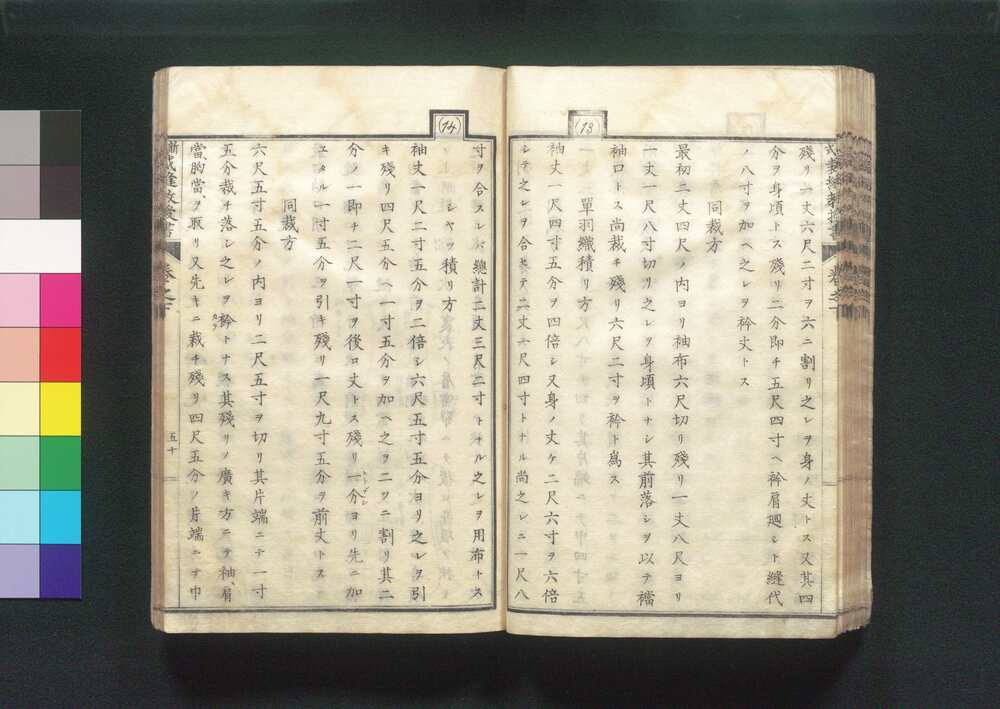 (13)
残リ一丈六尺二寸ヲ六ニ割リ之レヲ身ノ丈トス又其四
分ヲ身頃トス残リ二分即チ五尺四寸ヘ衿肩廻シト縫代
ノ八寸ヲ加ヘ之レヲ衿丈トス
同裁方
最初二丈四尺ノ内ヨリ袖布六尺切リ残リ一丈八尺ヨリ
一丈一尺八寸切リ之レヲ身頃トナシ其前落シヲ以テ襠
袖口トス尚裁チ残リ六尺二寸ヲ衿ト為ス
單羽織積リ方
袖丈一尺四寸五分ヲ四倍シ又身ノ丈ケ二尺六寸ヲ六倍
シテ之レヲ合セテ二丈一尺四寸トナル尚之レニ一尺八
(14)
寸ヲ合スレバ總計二丈三尺二寸トナル之レヲ用布トス
シヤツ積リ方
袖丈一尺二寸五分ヲ二倍シ六尺五寸五分ヨリ之レヲ引
キ残リ四尺五分ヘ一寸五分ヲ加ヘ之ヲ二ツニ割リ其二
分ノ一即チ二尺一寸ヲ後ロ丈トス残リ一分ヨリ先ニ加
エタル一寸五分ヲ引キ残リ一尺九寸五分ヲ前丈トス
同裁方
六尺五寸五分ノ内ヨリ二尺五寸ヲ切リ其片端ニテ一寸
五分裁チ落シ之レヲ衿トナス其残リノ廣キ方ニテ袖、肩
當、胸當、ヲ取リ又先キニ裁チ残リ四尺五分ノ片端ニテ巾
五十